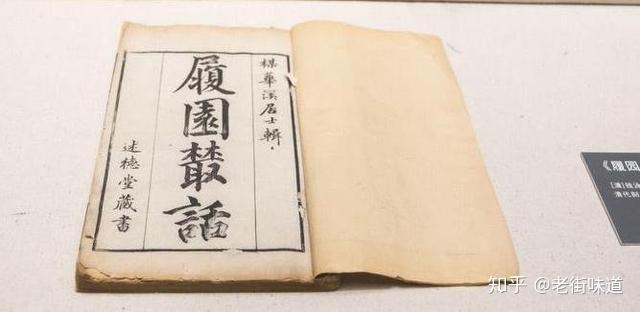 楳華溪居士輯
履園叢話
述德堂藏書
《履园
[清]钱泳
清代刻
知乎 @老街味道